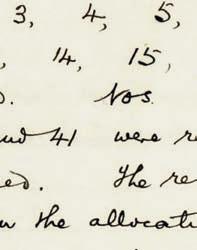 3, 4, 5,
, 14, 15,
. Nos.
and 41 were re
ed. The re
the allocati